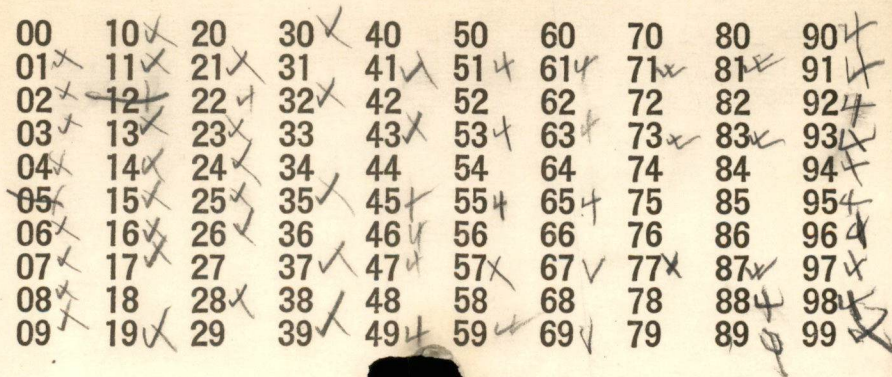 00 10 20 30 40 50 60 70 80 90
01 11 21 31 41 51 61 71 81 91
02 12 22 32 42 52 62 72 82 92
03 13 23 33 43 53 63 73 83 93
04 14 24 34 44 54 64 74 84 94
05 15 25 35 45 55 65 75 85 95
06 16 26 36 46 56 66 76 86 96
07 17 27 37 47 57 67 77 87 97
08 18 28 38 48 58 68 78 88 98
09 19 29 39 49 59 69 79 89 99